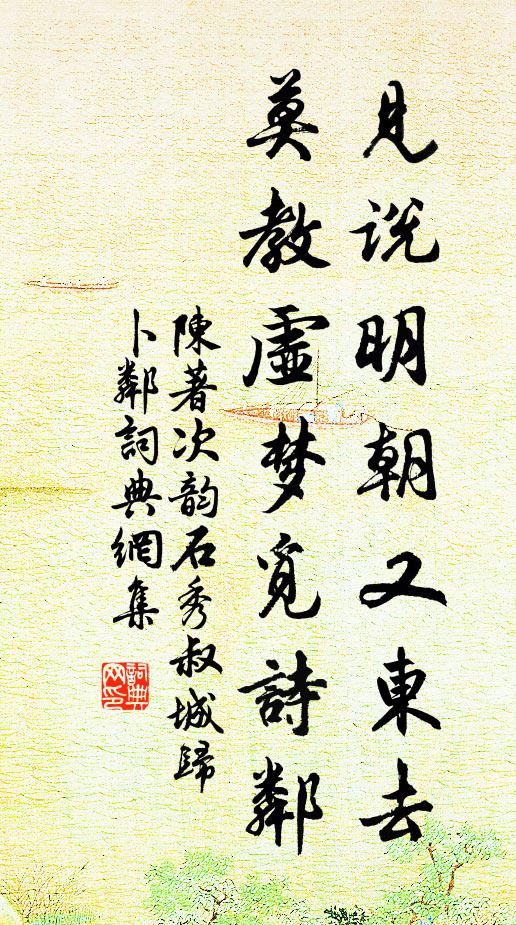 見説明朝又東去
莫教虛梦覓詩鄰
陳著次韵石秀叔城歸
卜鄰詞典網集
詞典网印